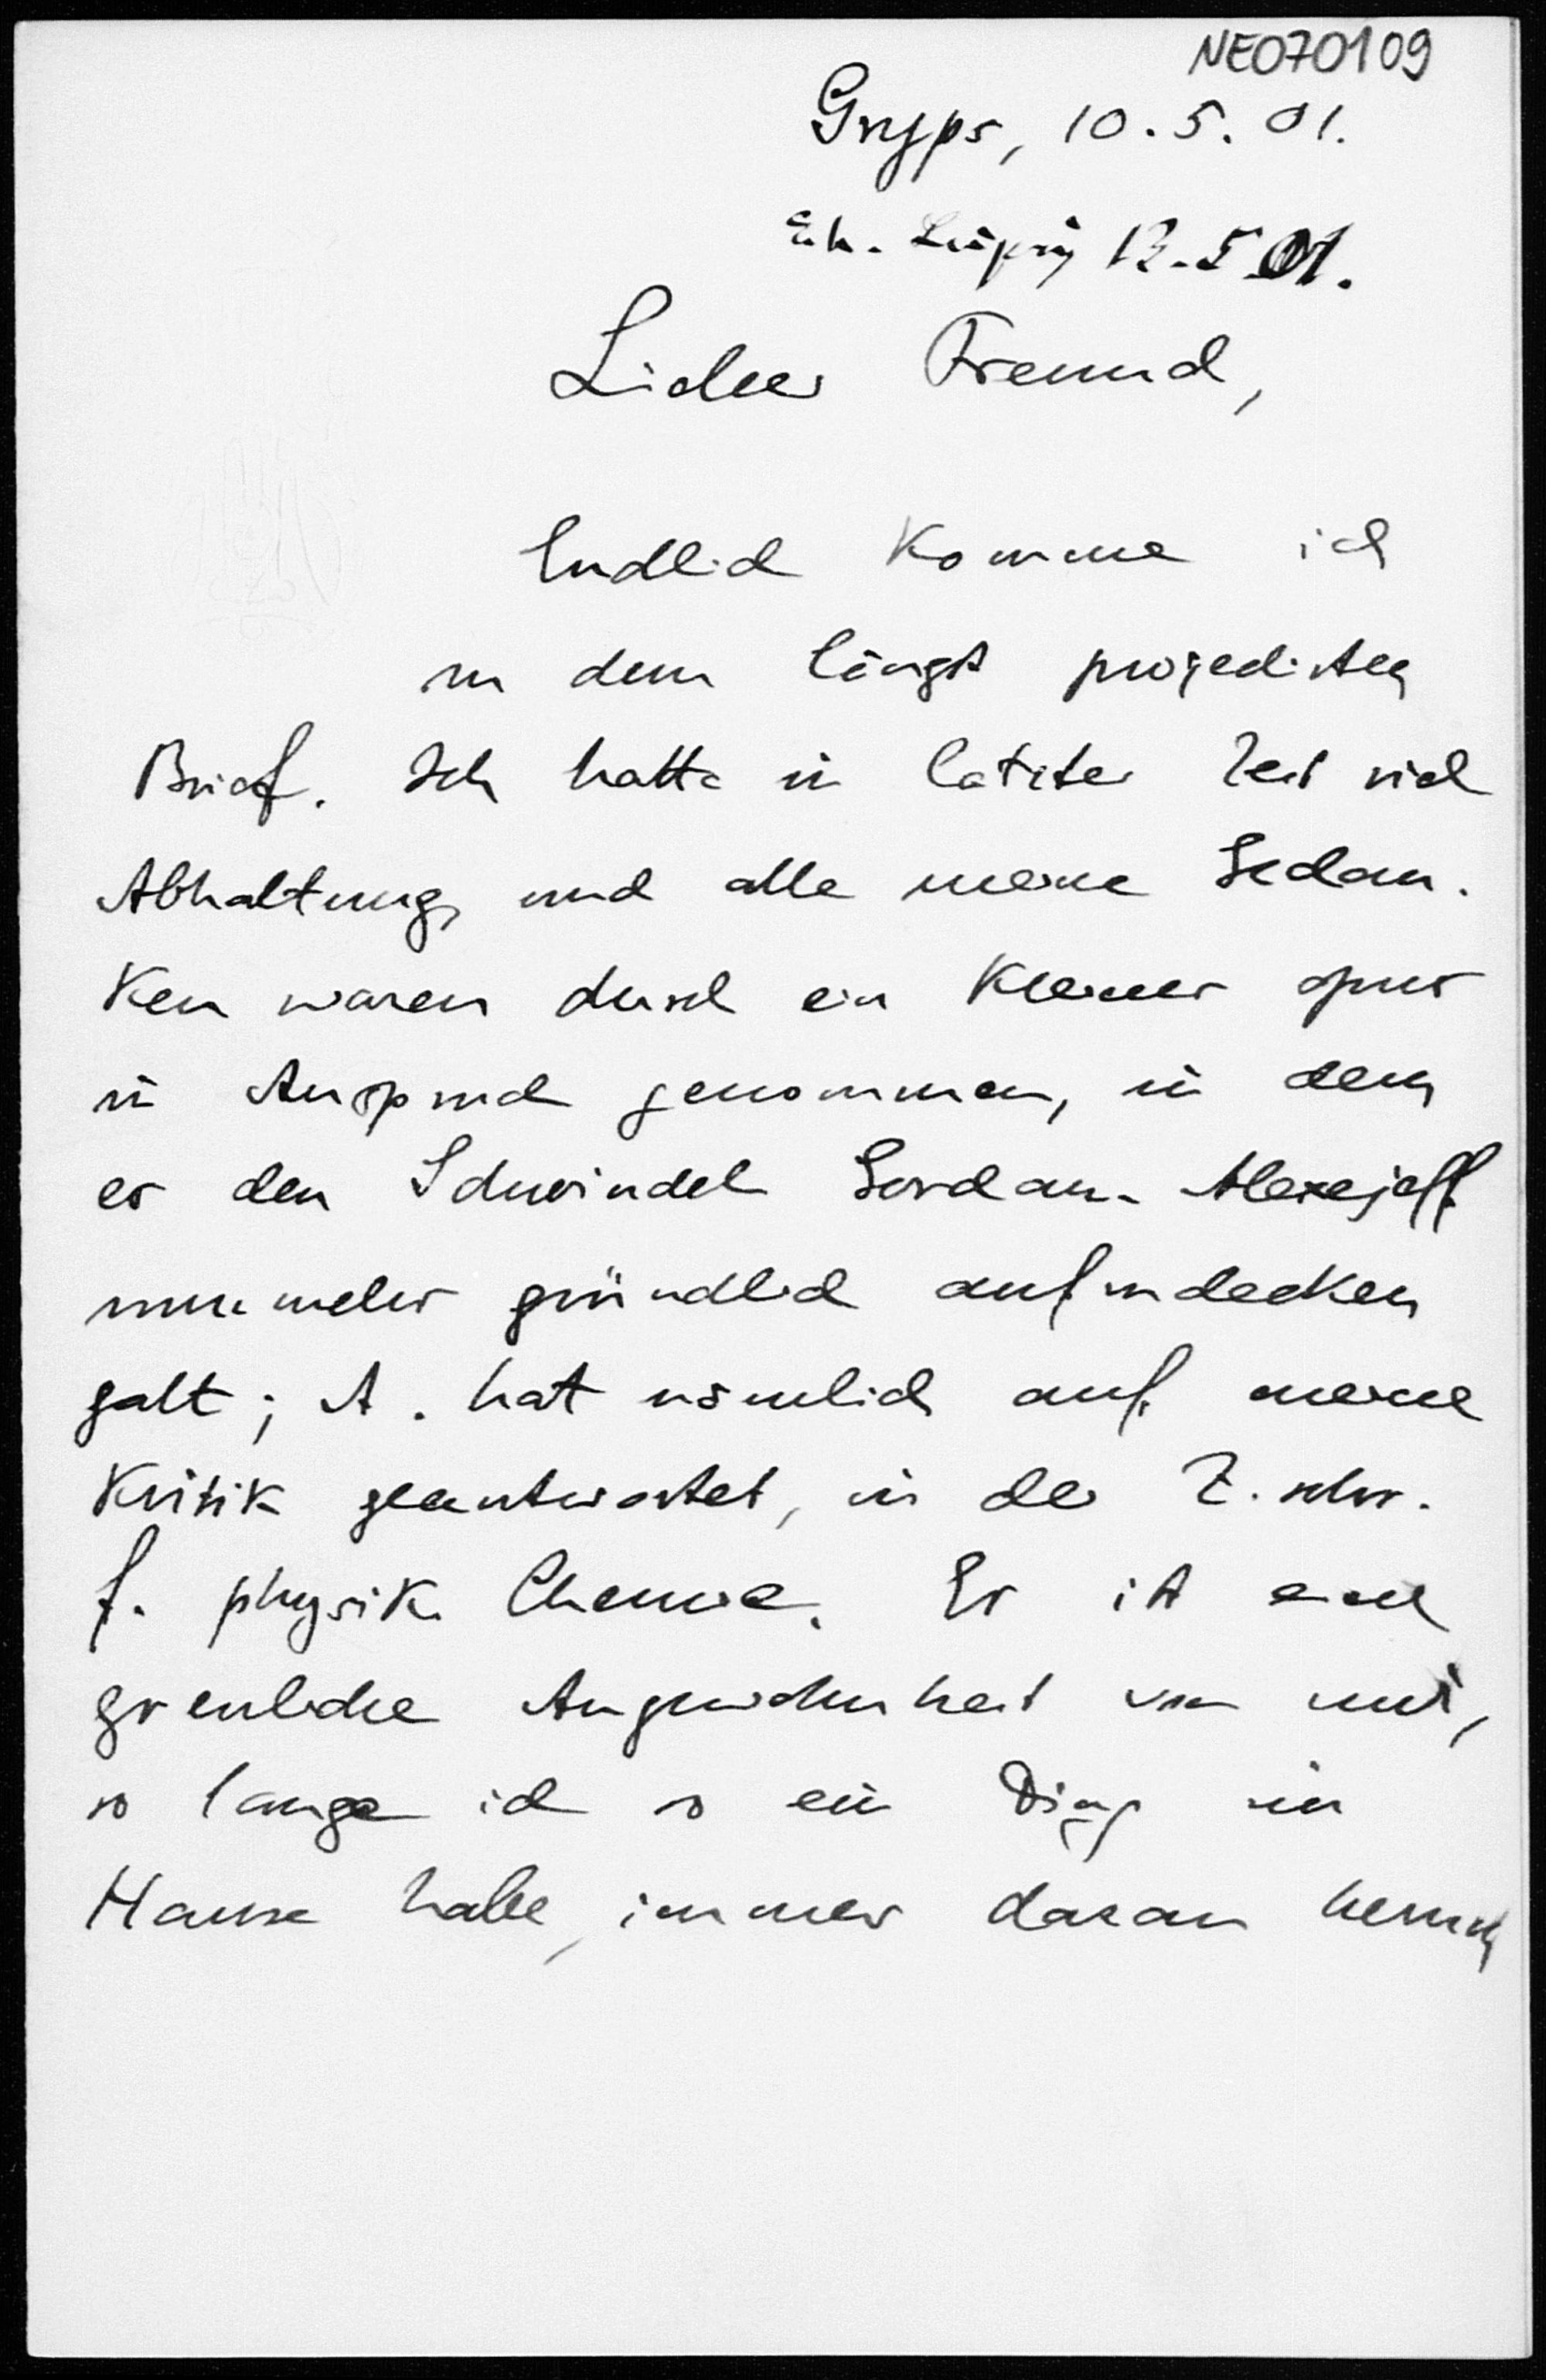 NE070109
Gryps, 10.5.01.
Erh. Leipzig 12.5.01.
Lieber Freund,
Endlich komme ich
zu dem längst projectirten
Brief. Ich hatte in letzter Zeit viel
Abhaltung, und alle meine Gedan-
ken waren durch ein kleines opus
in Anspruch genommen, in dem
es den Schwindel Jordan-Alexejeff
nunmehr gründlich aufzudecken
galt; A. hat nämlich auf meine
Kritik geantwortet, in der Z.schr.
f. physik. Chemie. Es ist eine
greuliche Angewohnheit von mir,
so lange ich so ein Ding im
Hause habe, immer daran herum